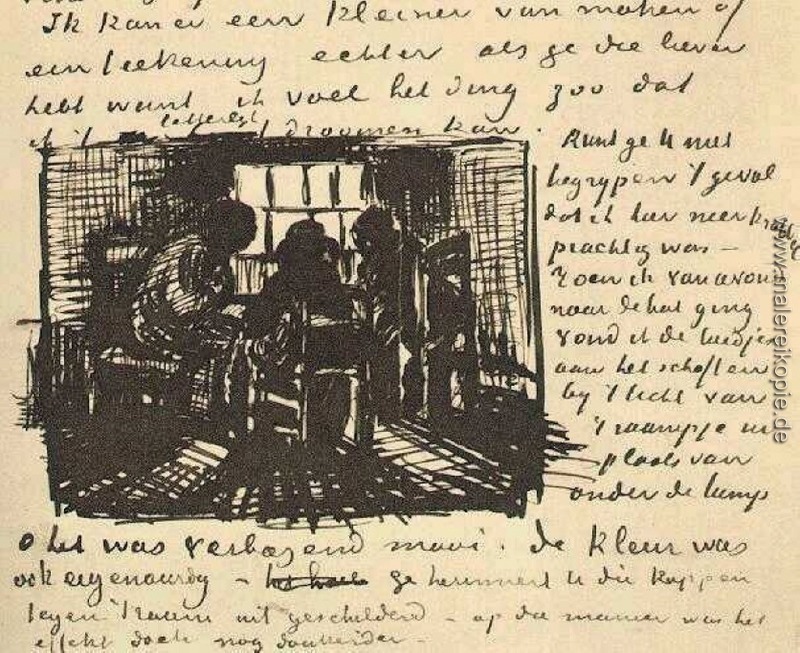 Ik kan er een kleiner van maken of
een teekening echter als ge die liever
hebt want ik voel het ding zoo dat
letterlijk
ik 't droomen kan.
Kunt ge U niet
begrypen 't geval
dat ik hier neerkrabbel
prachtig was –
Toen ik van avond
naar de hut ging
vond ik de luidjes
aan het schoften
by 't licht van
't raampje in
plaats van
onder de lamp
o het was verbazend mooi. de kleur was
ook eigenaardig – ge herinnert U die koppen
tegen 't raam uit geschilderd – op die manier was het
effekt doch nog donkerder –
www.malereikopie.de